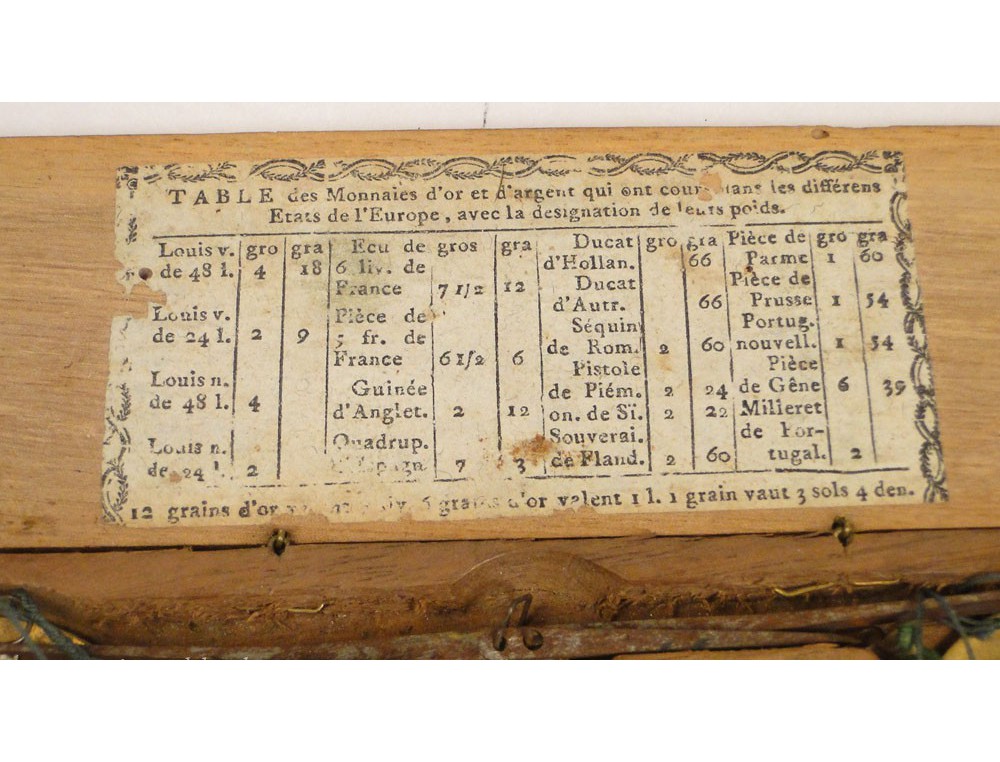 TABLE des Monnaies d'or et d'argent qui ont cours dans les différens
Etats de l'Europe, avec la designation de leurs poids.
Louis v. gro gra
de 48 l. 4 18
Louis v.
de 24 l. 2 9
Louis n.
de 48 l. 4
Louis n.
de 24 l. 2
Ecu de gros gra
6 liv. de
France 7 1/2 12
Pièce de
5 fr. de
France 6 1/2 6
Guinée
d'Anglet. 2 12
Quadrup.
d'Espagn 7 3
Ducat gro gra
d'Hollan. 66
Ducat
d'Autr. 66
Séquin
de Rom. 2 60
Pistole
de Piém. 2 24
on. de Sï. 2 22
Souverai.
de Fland. 2 60
Pièce de gro gra
Parme 1 60
Pièce de
Prusse 1 54
Portug.
nouvell. 1 54
Pièce
de Gêne 6 39
Milieret
de Por-
tugal. 2
12 grains d'or 6 grains d'or valent 1 l. 1 grain vaut 3 sols 4 den.